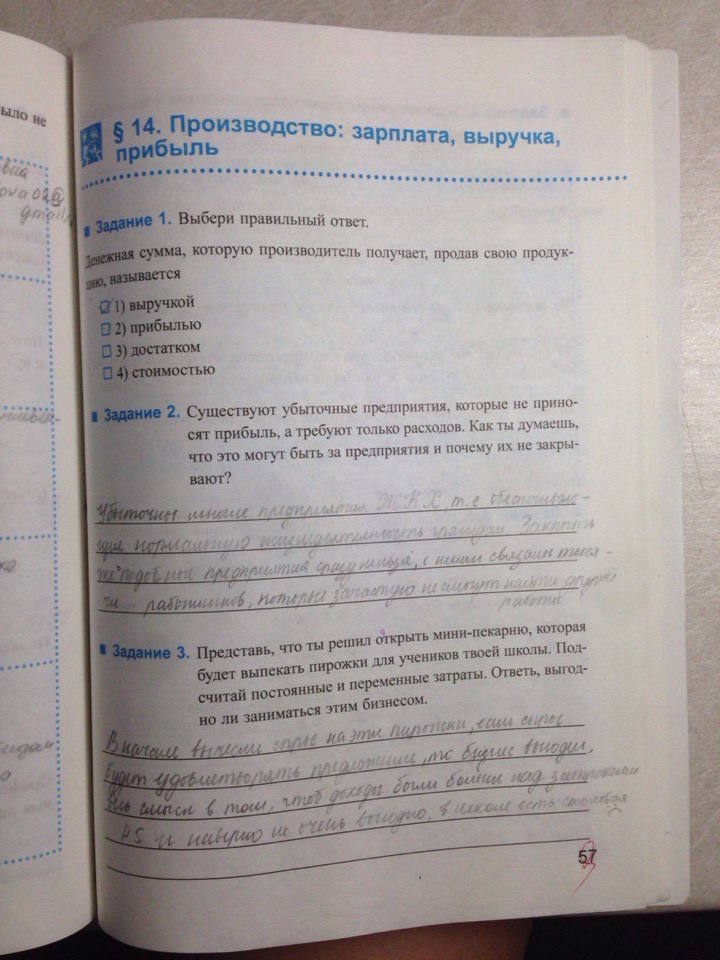 ыло не
ova 02@
gmail
§ 14. Производство: зарплата, выручка,
прибыль
Задание 1. Выбери правильный ответ.
Денежная сумма, которую производитель получает, продав свою продук-
цию, называется
1) выручкой
2) прибылью
3) достатком
4) стоимостью
Задание 2. Существуют убыточные предприятия, которые не прино-
сят прибыль, а требуют только расходов. Как ты думаешь,
что это могут быть за предприятия и почему их не закры-
вают?
Убыточны многие предприятия ЖКХ, т.е обеспечиваю-
щие нормальную жизнедеятельность граждан. Закрыть
же подобные предприятия сразу нельзя, с ними связаны тыся-
чи работников, которые зачастую не смогут найти другой
работы
Задание 3. Представь, что ты решил открыть мини-пекарню, которая
будет выпекать пирожки для учеников твоей школы. Под-
считай постоянные и переменные затраты. Ответь, выгод-
но ли заниматься этим бизнесом.
В начале вычислим спрос на эти пирожки, если спрос
будет удовлетворять предложение, то бизнес выгоден,
весь смысл в том, чтоб доходы были больше над затратами
P.S и наверно не очень выгодно, в школе есть столовая
57